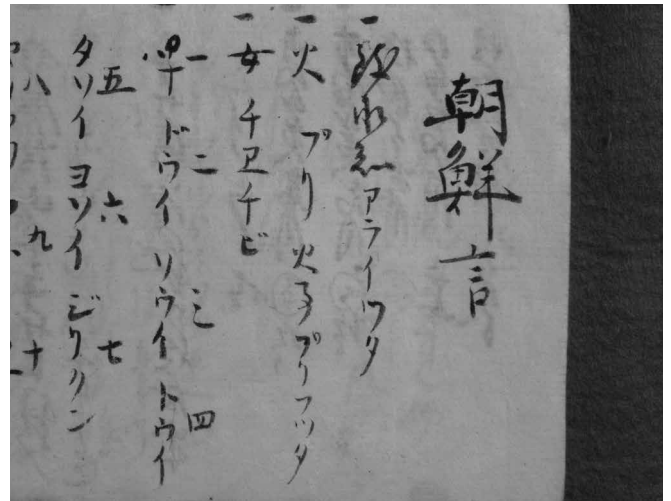 朝鮮言
一 アライツタ
一 火 プリ 火事 プリフツタ
一 女 チヱチビ
一 二 三 四
ドウイ ソウイ トウイ
五 六 七
タソイ ヨソイ ジリクン
八 九 十